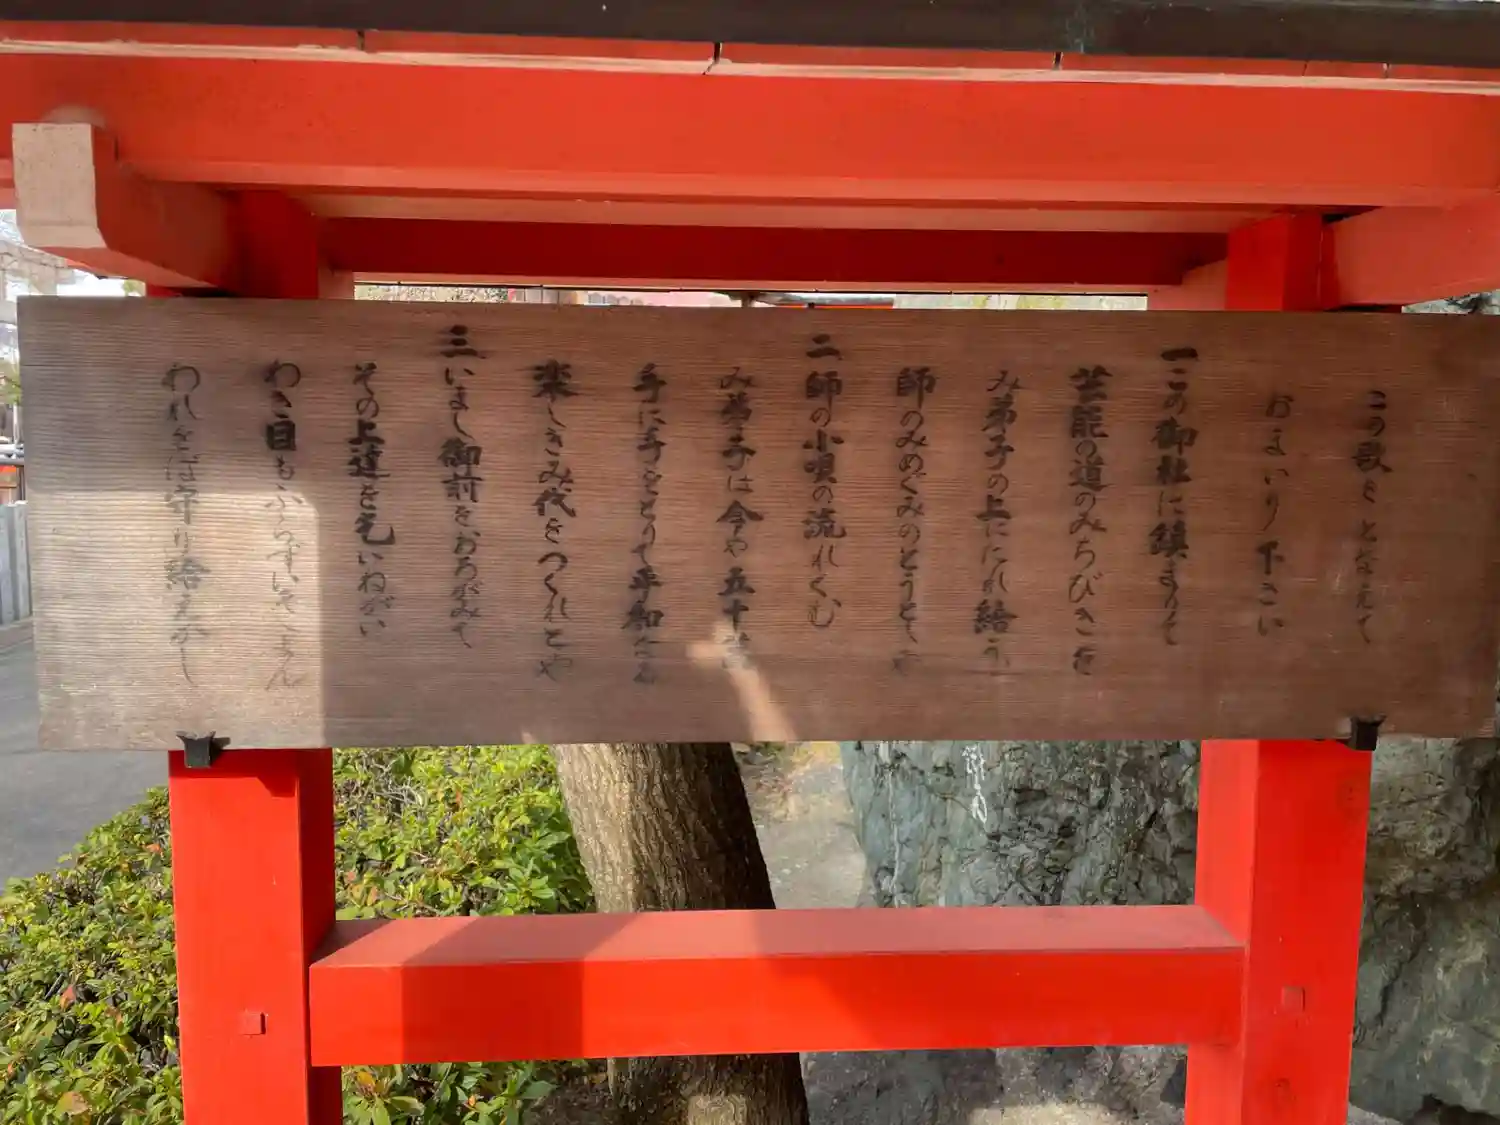 この歌をとなえて
おまいり下さい
一、この御社に鎮まりて
芸能の道のみちびきを
み弟子の上にたれ給う
師のみめぐみのとうとしや
二、師の小唄の流れくむ
み弟子は今や五十万
手に手をとりて平和なる
楽しきみ代をつくれとや
三、いまし御前をおろがみて
その上達を乞いねがい
わき目もふらずいそしまん
われをば守り給えかし